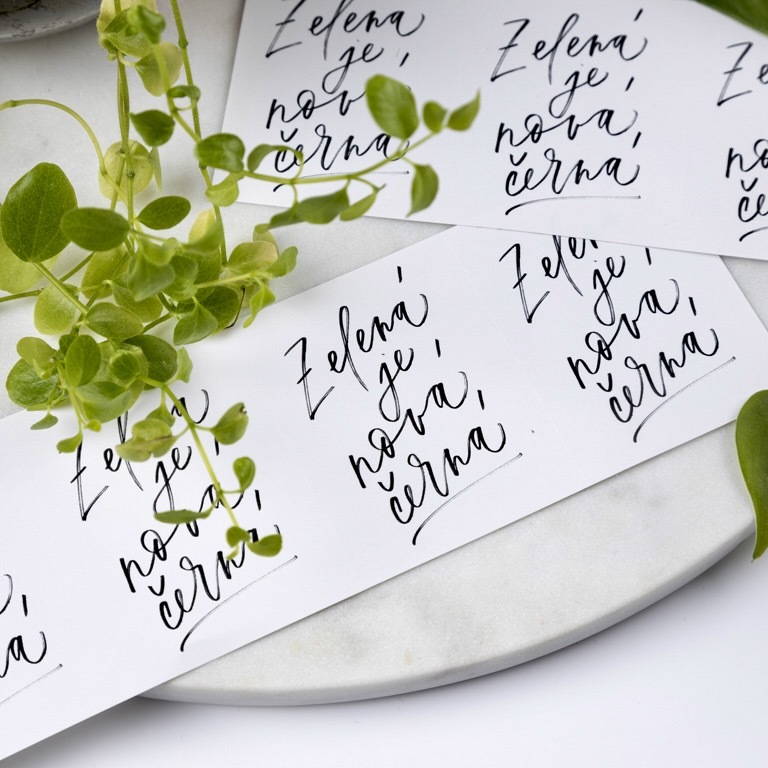 Zelená
je,
nová,
černá
Zelená
je,
nová,
černá
Ze
no
če
Zelená
je,
nová,
černá
Zele
je,
nová,
černá
Zel
je,
nová,
černá
á